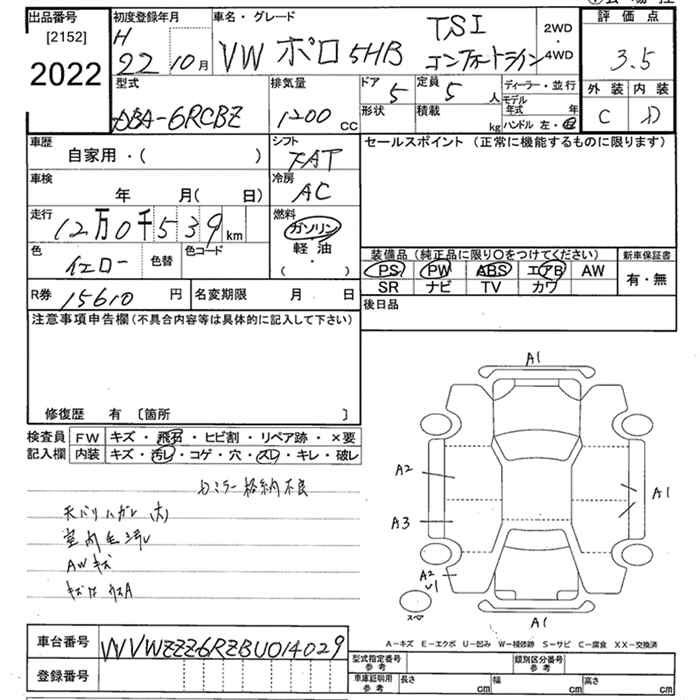 出品番号 初度登録年月 車名・グレード 評価点
[2152] H TSI 2WD
2022 22 10月 VW ポロ 5HB コンフォートライン 4WD 3.5
型式 排気量 ドア 5 定員 5人 ディーラー・並行 外装 内装
DBA-6RCBZ 1200cc 形状 積載 kg モデル年式 年 C D
ハンドル 左・右
車歴 シフト セールスポイント (正常に機能するものに限ります)
自家用・( ) FAT
車検 冷房
年 月( 日) AC
走行 燃料
12万0千539km ガソリン
色 イエロー 色替 色コード 軽油
( ・ )
装備品 (純正品に限り〇をつけてください) 新車保証書
PS PW ABS エアB AW 有・無
SR ナビ TV カワ
R券 15610円 名変期限 月 日 後日品
注意事項申告欄(不具合内容等は具体的に記入して下さい)
修復歴 有 [箇所 ]
検査員 FW キズ・飛石・ヒビ割・リペア跡・×要
記入欄 内装 キズ・汚レ・コゲ・穴・スレ・キレ・破レ
ミラー格納不良
天バリハガレ(大)
AWキズ
A1
A2
A1
A3
A2
A1
スペア
A-キズ E-エクボ U-凹み W-補修跡 S-サビ C-腐食 XX-交換済
車台番号 WVWZZZ6RZBU014029
登録番号
型式指定番号 参考 類別区分番号 参考
車庫証明用 参考 長さ cm 幅 cm 高さ cm